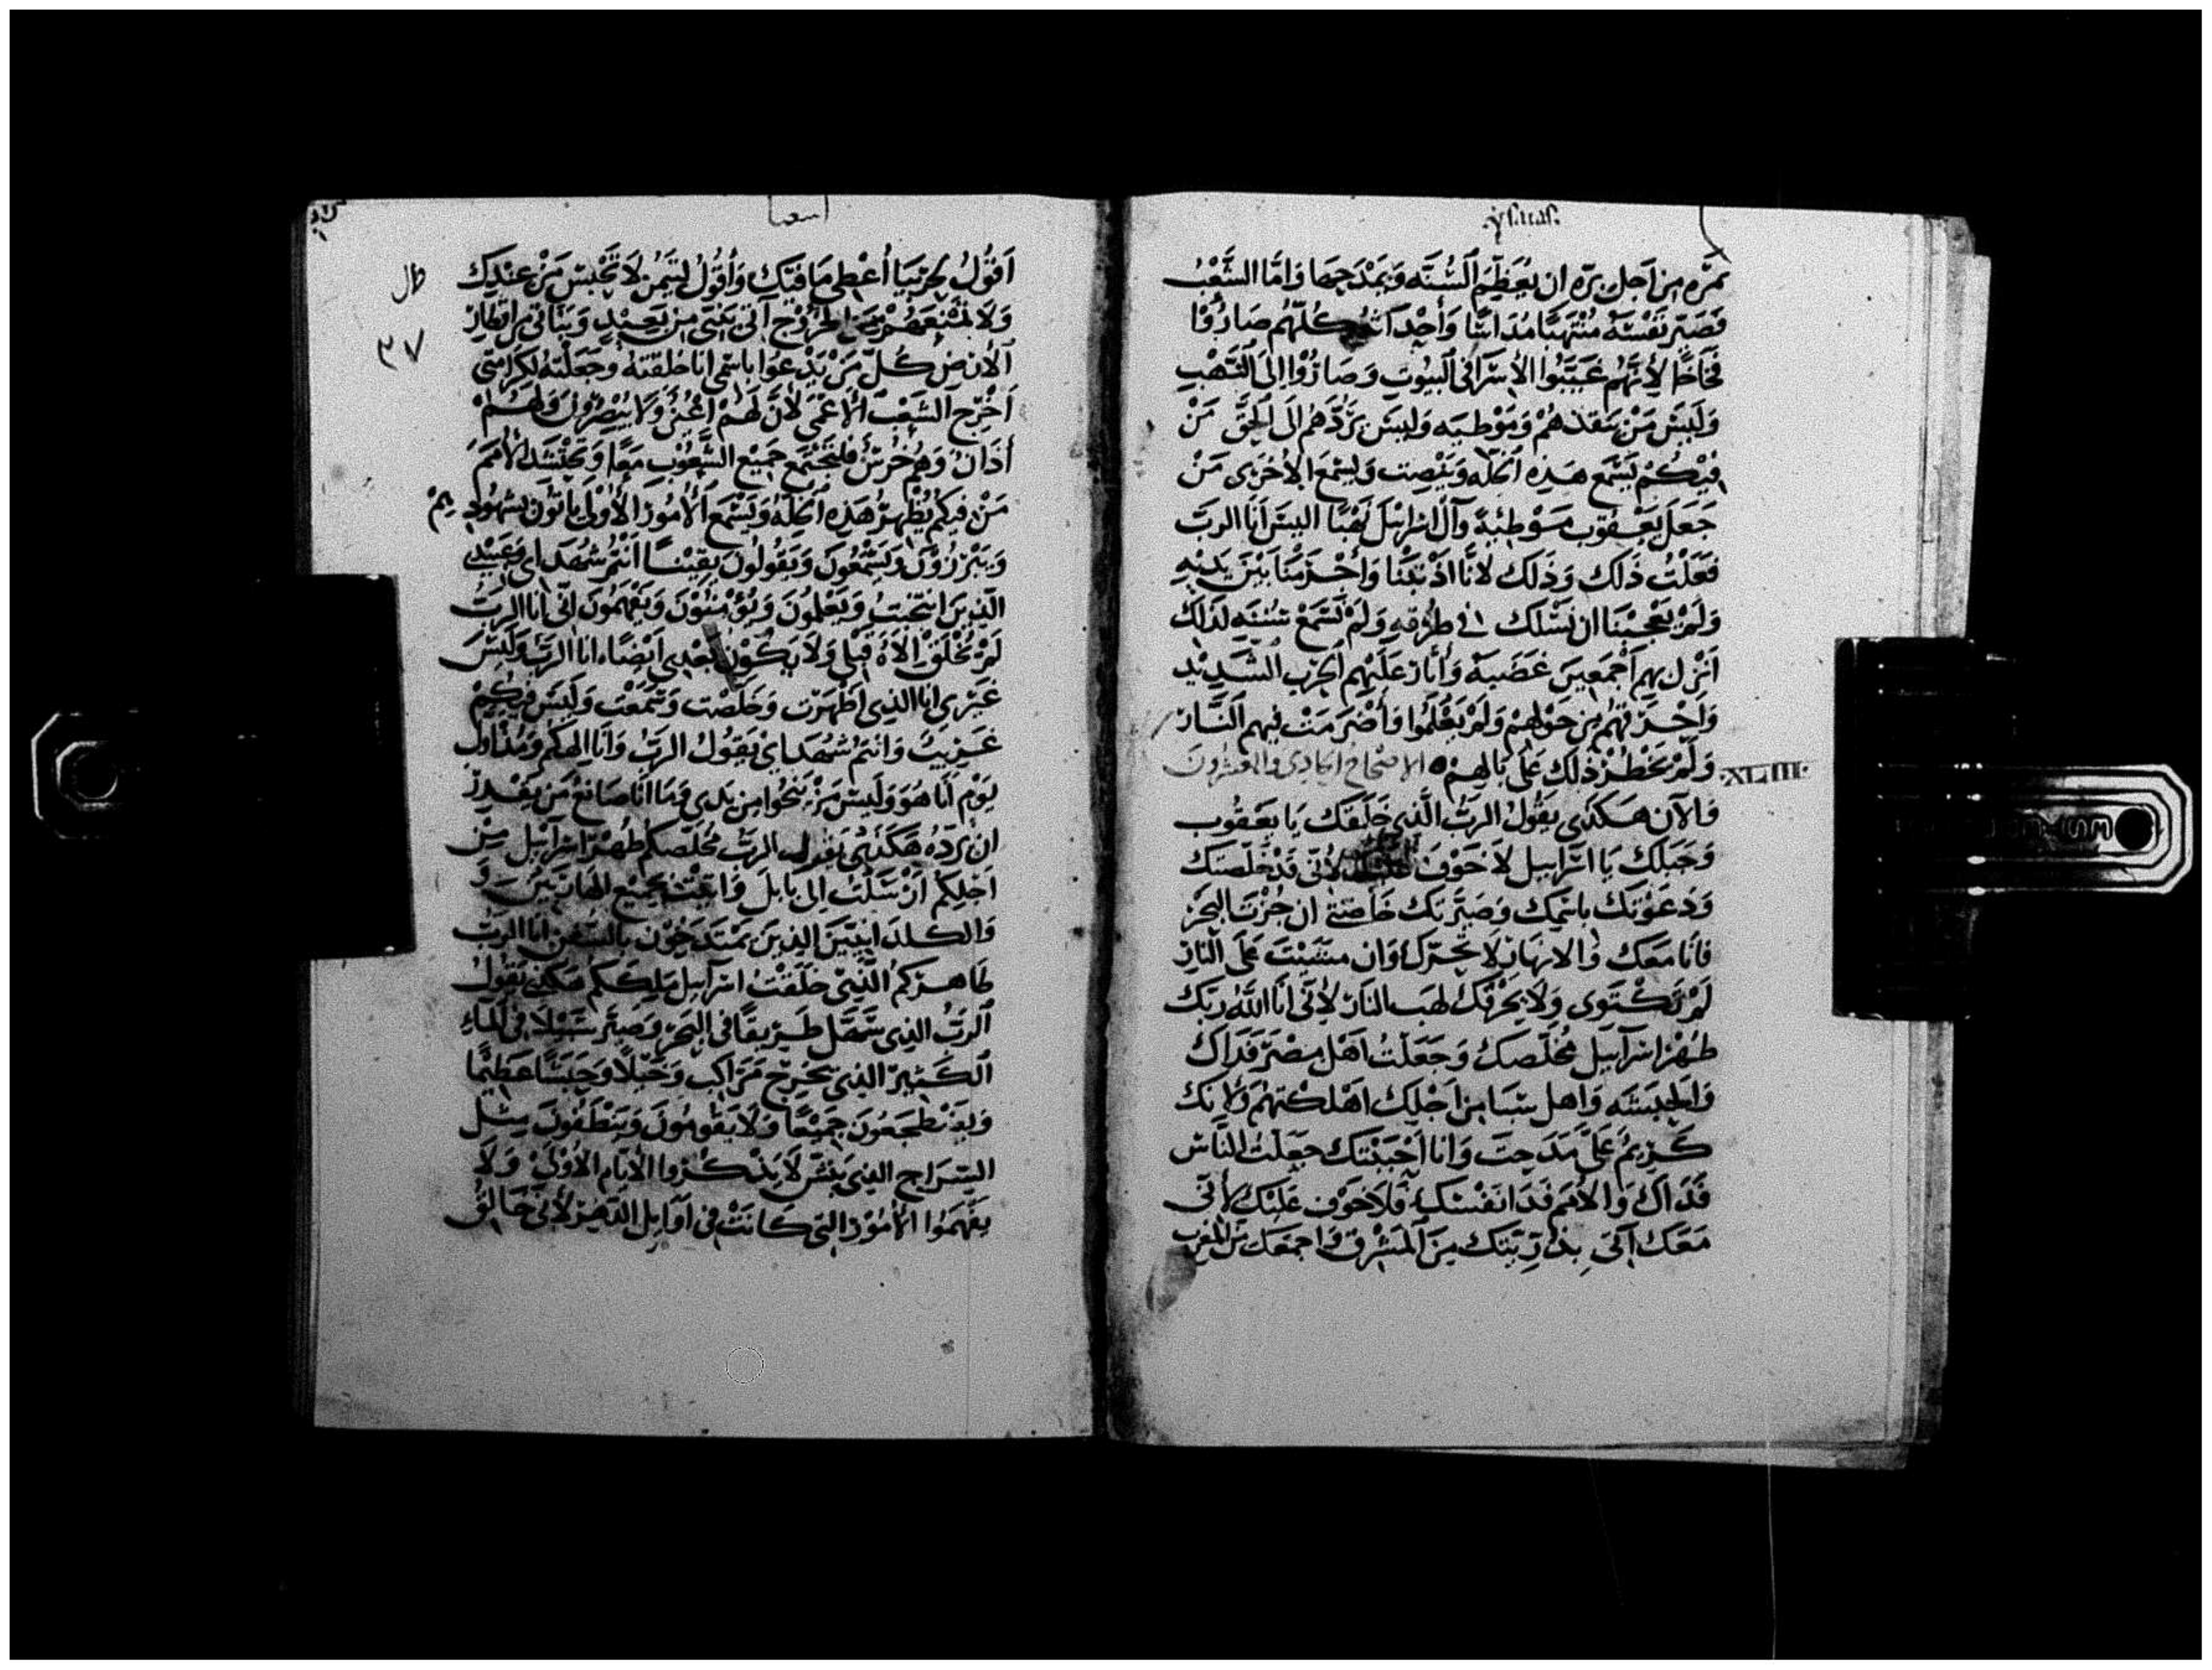 .ysaias.
بره من اجل بره ان يعظم السنه ويمدحها واما الشعب
فصير نفسه منتهبا مداسا وأحداثه كلهم صاروا
فخاخا لأنهم غيبوا الاسرا في البيوت وصاروا إلى النهب
وليس من ينقذهم وموطيه وليس يردهم الى الحق من
فيكم يسمع هذه الخله وينصت ويسمع الاخرى من
جعل يعقوب موطيه وآل اسرائيل نهبا اليس انا الرب
فعلت ذلك وذلك لانا اذنبنا وأجرمنا بين يديه
ولم يعجبنا ان نسلك في طرقه ولم نسمع سننه لذلك
انزل بهم اجمعين غضبه وأثار عليهم الحرب الشديد
واحرقهم من حولهم ولم يعلموا وأضرمت فيهم النار
ولم يخطر ذلك على بالهم الاصحاح الحادي والعشرون
XLIII
والآن هكذى يقول الرب الذي خلقك يا يعقوب
وجبلك يا اسراييل لا خوف عليك لأني قد خلصتك
ودعوتك باسمك وصيرتك خاصتي ان جزت البحر
فانا معك والانهار لا تحترك وان مشيت على النار
لم تكتوى ولا يحرقك لهب النار لاني انا الله ربك
طهر اسراييل مخلصك وجعلت اهل مصر فداك
والحبشه واهل سبا من اجلك اهلكتهم ولانك
كريم علي مدحت وانا احببتك جعلت الناس
فداك والأمم فدا نفسك فلا خوف عليك لأني
معك آتي بذريتك من المشرق واجمعك من المغرب
اشعيا
طال
٣٧
اقول لجربيا أعطي ما قبلك وأقول لتيمن لا تحبس من عندك
ولا تمنعهم من الخروج آتي ببني من بعيد وبناتي من اقطار
الأرض كل من يدعوا باسمي انا خلقته وجعلته لكرامتي
اخرج الشعب الاعمى لأن لهم اعين ولا يبصرون ولهم
أذان وهم خرس فلتجتمع جميع الشعوب معا وتحتشد الأمم
من فيكم يظهر هذه الخله ويسمع الأمور الأولى يأتون بشهودهم
ويبررون ويسمعون ويقولون يقينا أنتم شهداي وعبدي
الذين انتخبت ويعلمون ويؤمنون ويفهمون اني انا الرب
لم يخلق الاه قبلي ولا يكون بعدي ايضا انا الرب وليس
غيري انا الذي اظهرت وخلصت وسمعت وليس فيكم
غريب وانتم شهداي يقول الرب وانا الهكم ومذ اول
يوم انا هو وليس من ينجوا من يدي وما انا صانع من يقدر
ان يرده هكذى يقول الرب مخلصكم طهر اسراييل من
اجلكم ارسلت الى بابل واتيت بجميع الهاربين و
والكلدانيين الذين يمتدحون بالسفن انا الرب
طاهركم الذي خلقت اسراييل ملككم هكذى يقول
الرب الذي سهل طريقا في البحر وصير سبيلا في الماء
الكثير الذي يخرج مراكب وخيلا وجيشا عظيما
ويضطجعون جميعا ولا يقومون وينطفون مثل
السراج الذي ينش لا يذكروا الأيام الأولى ولا
يفهموا الأمور التي كانت في اوايل الدهر لأني خالق